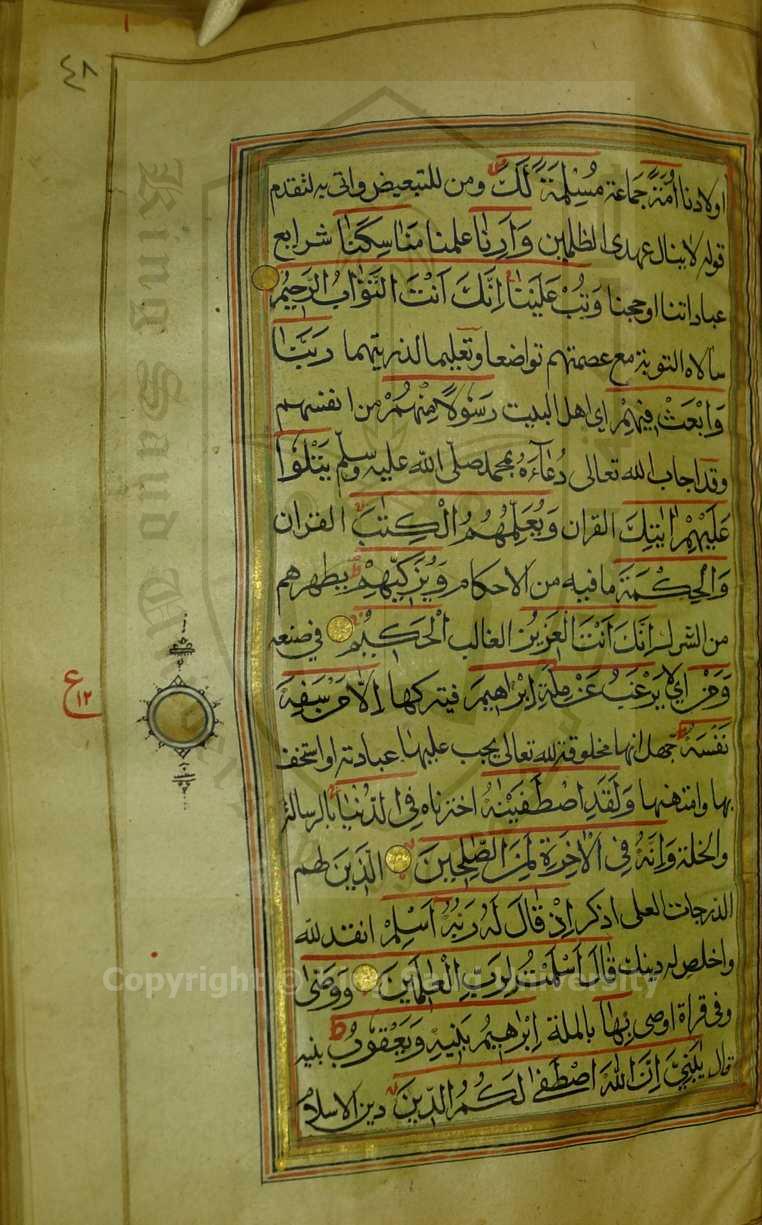 ٤٨
اولادنا اُمَّةً جماعة مُسْلِمَةً لَّكَ ومن للتبعيض واتى به لتقدم
قوله لا ينال عهدى الظلمين وَاَرِنَا علمنا مَنَاسِكَنَا شرايع
عباداتنا او حجنا وَتُبْ عَلَيْنَا اِنَّكَ اَنْتَ التَّوَّابُ الرَّحِيْمُ
سالاه التوبة مع عصمتهم تواضعا وتعليما لذريتهما رَبَّنَا
وَابْعَثْ فِيْهِمْ اى اهل البيت رَسُوْلًا مِّنْهُمْ من انفسهم
وقد اجاب الله تعالى دُعَآءَهُ بمحمد صلى الله عليه وسلم يَتْلُوْا
عَلَيْهِمْ اٰيٰتِكَ القران وَيُعَلِّمُهُمُ الْكِتٰبَ القران
وَالْحِكْمَةَ ما فيه من الاحكام وَيُزَكِّيْهِمْ يطهرهم
من الشرك اِنَّكَ اَنْتَ الْعَزِيْزُ الغالب الْحَكِيْمُ في صنعه
وَمَنْ اى لا يَرْغَبُ عَنْ مِلَّةِ اِبْرَاهِيمَ فيتركها اِلَّا مَنْ سَفِهَ
ع
١٢
نَفْسَهُ جهل انها مخلوقة لله تعالى يجب عليها عبادته او استخف
بها وامتهنها وَلَقَدِ اصْطَفَيْنٰهُ اخترناه فِى الدُّنْيَا بالرسالة
والخلة وَاِنَّهُ فِى الْاٰخِرَةِ لَمِنَ الصّٰلِحِيْنَ الَّذِينَ لهم
الدرجات العلى اذكر اِذْ قَالَ لَهُ رَبُّهُ اَسْلِمْ انقد لله
واخلص له دينك قَالَ اَسْلَمْتُ لِرَبِّ الْعٰلَمِيْنَ وَوَصّٰى
وفى قراة اوصى بِهَا بالملة اِبْرٰهِيْمُ بَنِيْهِ وَيَعْقُوْبُ بنيه
قال يٰبَنِىَّ اِنَّ اللّٰهَ اصْطَفٰى لَكُمُ الدِّيْنَ دين الاسلام
King Saud University
Copyright © King Saud University